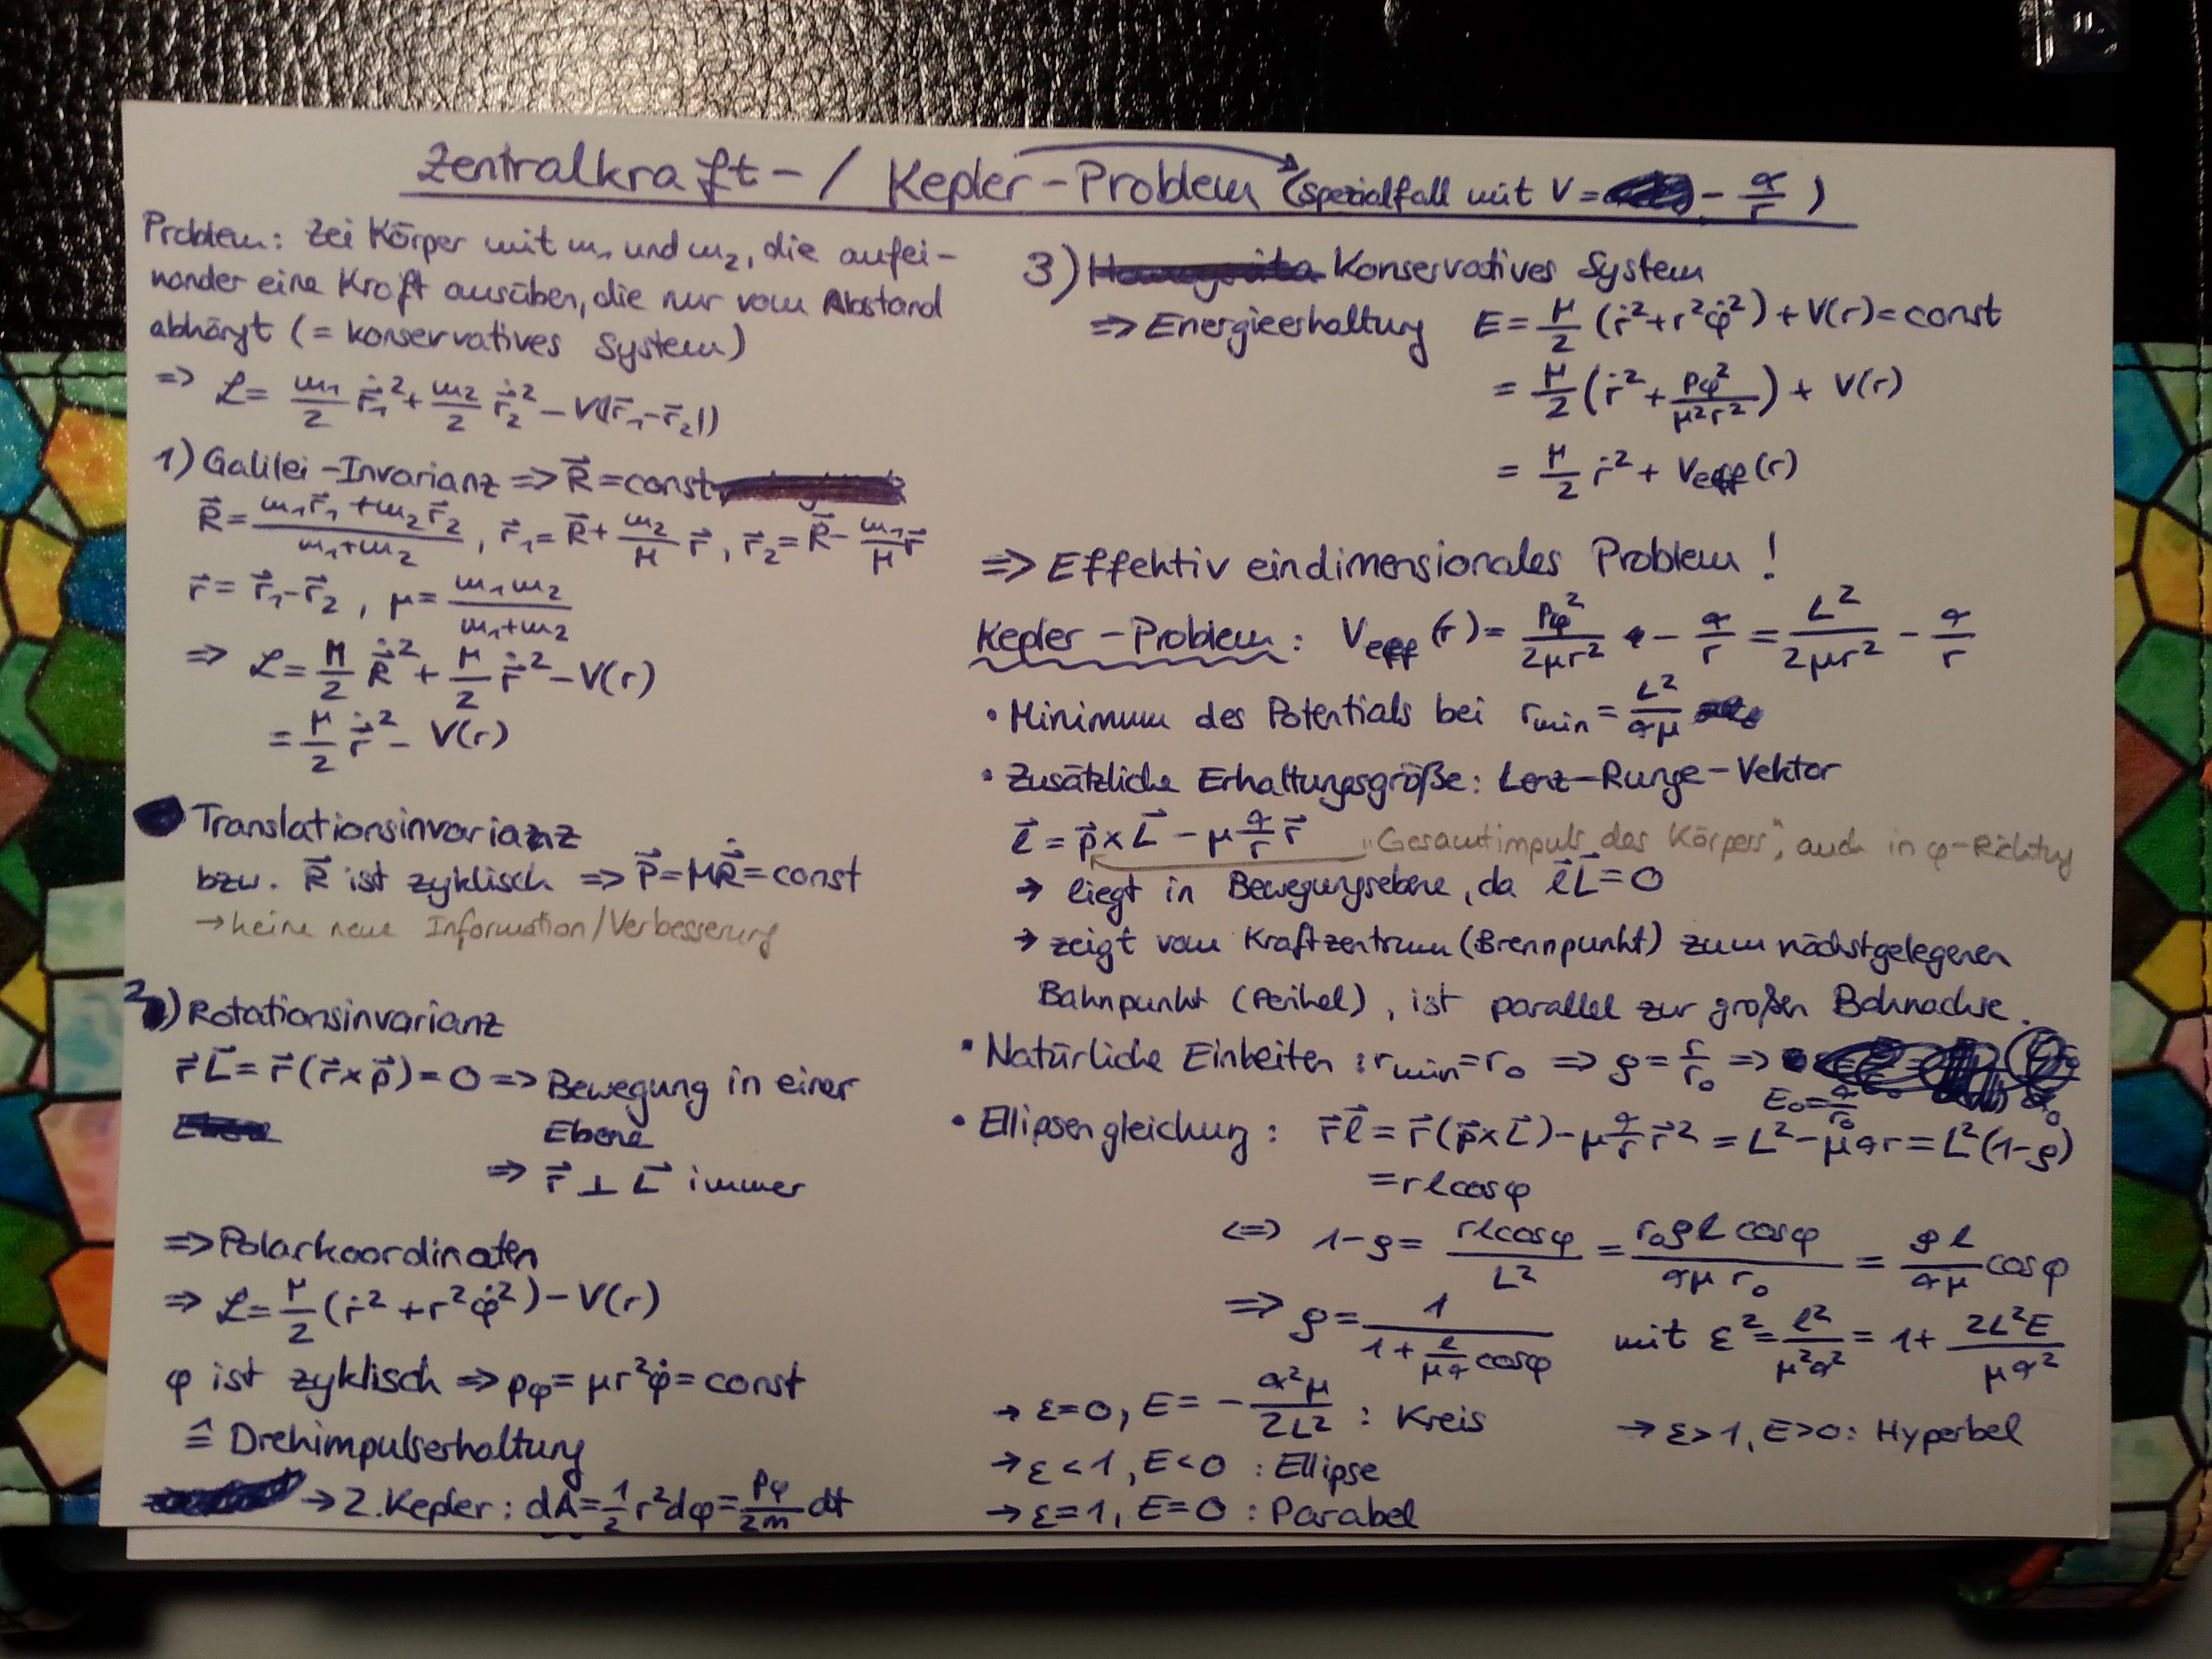 Zentralkraft-/ Kepler-Problem (spezialfall mit V = - α/r )
Problem: Zei Körper mit m₁ und m₂, die aufei-
nander eine Kraft ausüben, die nur vom Abstand
abhängt (= konservatives System)
=> ℒ = m₁/2 ṙ⃗₁² + m₂/2 ṙ⃗₂² - V(|r⃗₁-r⃗₂|)
1) Galilei-Invarianz => R⃗ = const
R⃗ = (m₁r⃗₁ + m₂r⃗₂)/(m₁+m₂) , r⃗₁ = R⃗ + m₂/M r⃗ , r⃗₂ = R⃗ - m₁/M r⃗
r⃗ = r⃗₁-r⃗₂ , μ = m₁m₂/(m₁+m₂)
=> ℒ = M/2 Ṙ⃗² + μ/2 ṙ⃗² - V(r)
= μ/2 ṙ⃗² - V(r)
Translationsinvarianz
bzw. R⃗ ist zyklisch => P⃗ = MṘ⃗ = const
→ keine neue Information/Verbesserung
2) Rotationsinvarianz
r⃗L⃗ = r⃗(r⃗×p⃗) = 0 => Bewegung in einer
Ebene
=> r⃗ ⊥ L⃗ immer
=> Polarkoordinaten
=> ℒ = μ/2 (ṙ² + r²φ̇²) - V(r)
φ ist zyklisch => pφ = μr²φ̇ = const
≙ Drehimpulserhaltung
→ 2. Kepler: dA = 1/2 r²dφ = pφ/2m dt
3) Konservatives System
=> Energieerhaltung E = μ/2 (ṙ² + r²φ̇²) + V(r) = const
= μ/2 (ṙ² + pφ²/μ²r²) + V(r)
= μ/2 ṙ² + Veff(r)
=> Effektiv eindimensionales Problem !
Kepler-Problem: Veff(r) = pφ²/2μr² - α/r = L²/2μr² - α/r
• Minimum des Potentials bei rmin = L²/αμ
• Zusätzliche Erhaltungsgröße: Lenz-Runge-Vektor
ℓ⃗ = p⃗×L⃗ - μ α/r r⃗ „Gesamtimpuls des Körpers", auch in φ-Richtung
→ liegt in Bewegungsebene, da ℓ⃗L⃗ = 0
→ zeigt vom Kraftzentrum (Brennpunkt) zum nächstgelegenen
Bahnpunkt (Perihel), ist parallel zur großen Bahnachse.
• Natürliche Einheiten : rmin = r₀ => ρ = r/r₀ =>
E₀ = α/r₀
• Ellipsengleichung: r⃗ℓ⃗ = r⃗(p⃗×L⃗) - μ α/r r⃗² = L² - μαr = L²(1-ρ)
= rℓcosφ
<=> 1-ρ = rℓcosφ/L² = r₀ρℓ cosφ/αμ r₀ = ρℓ/αμ cosφ
=> ρ = 1/(1 + ℓ/μα cosφ) mit ε² = ℓ²/μ²α² = 1 + 2L²E/μα²
→ ε=0, E = - α²μ/2L² : Kreis
→ ε<1, E<0 : Ellipse
→ ε=1, E=0 : Parabel
→ ε>1, E>0: Hyperbel